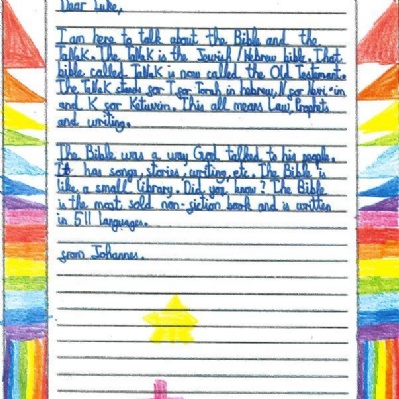 Dear Luke,
I am here to talk about the Bible and the
TaNaK. The TaNaK is the Jewish/Hebrew bible. That
bible called TaNaK is now called the Old Testament.
The TaNaK stands for T for Torah in hebrew, N for Nevi'im
and K for Ketuvim. This all means Law, Prophets
and writing.
The Bible was a way God talked to his people.
It has songs, stories, writing, etc. The Bible is
like a small library. Did you know? The Bible
is the most sold non-fiction book and is written
in 511 languages.
from Johannes.